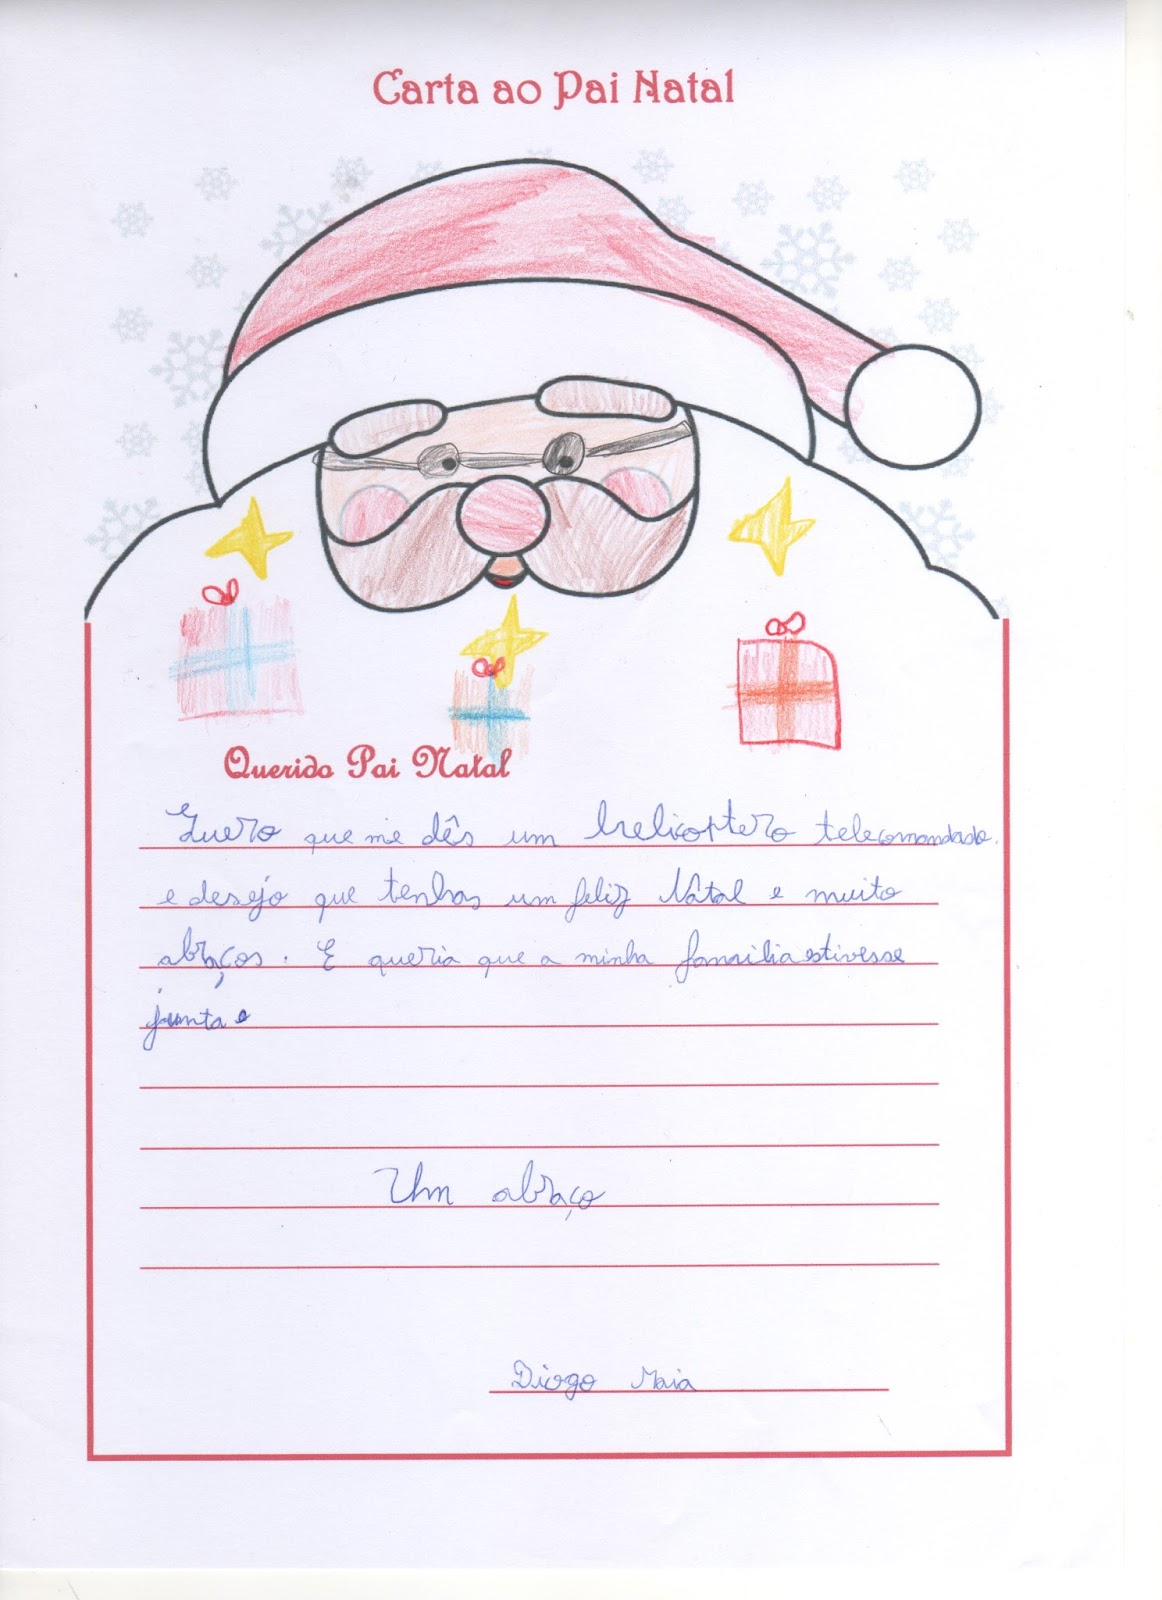 Carta ao Pai Natal
Querido Pai Natal
Quero que me dês um helicoptero telecomandado.
e desejo que tenhas um feliz Natal e muito
abraços. E queria que a minha familia estivesse
junta
Um abraço
Diogo Maia